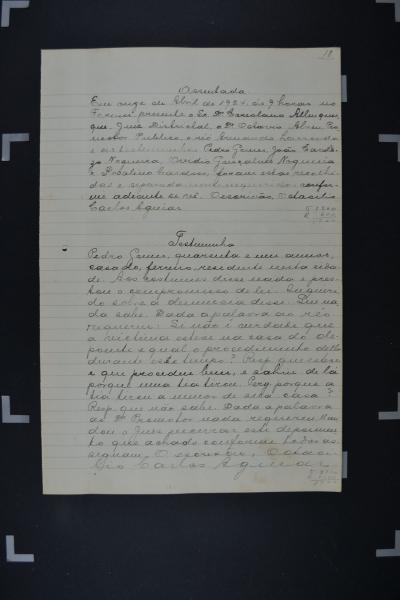 18
Assentada
Em onze de Abril de 1921, ás 9 horas no
Forum, presente o Sr. Dr. Coriolano Albuquer-
que, Juiz Districtal, o Dr. Octavio Abreu, Pro-
motor Publico, o réo Armando
e as testemunhas Pedro Gomes, João Cardo-
zo Nogueira, Ovidio Gonçalves Nogueira
e Cardoso, foram estas recolhi-
das e separadamente inqueridas confor-
me adeante se vê. O escrivão, Octacilio
Carlos Aguiar
Testemunha
Pedro Gomes, quarenta e um annos,
casado, ferreiro, residente nesta cida-
de. Aos costumes disse nada e pres-
tou o compromisso da lei. Inqueri-
do sobre a denuncia disse: Que na-
da sabe. Dada a palavra ao réo
requereu: Si não é verdade que
a victima esteve na casa do de-
poente e qual o procedimento della
durante esse tempo? Resp. que esteve
e que procedeu bem, e sahiu de lá
porque uma tia tirou. Perg. porque a
tia tirou a menor de sua casa?
Resp. que não sabe. Dada a palavra
ao Dr. Promotor nada requereu. Man-
dou o Juiz encerrar este depoimen-
to que achado conforme todos as-
signam. O escrivão, Octaci-
lio Carlos Aguiar